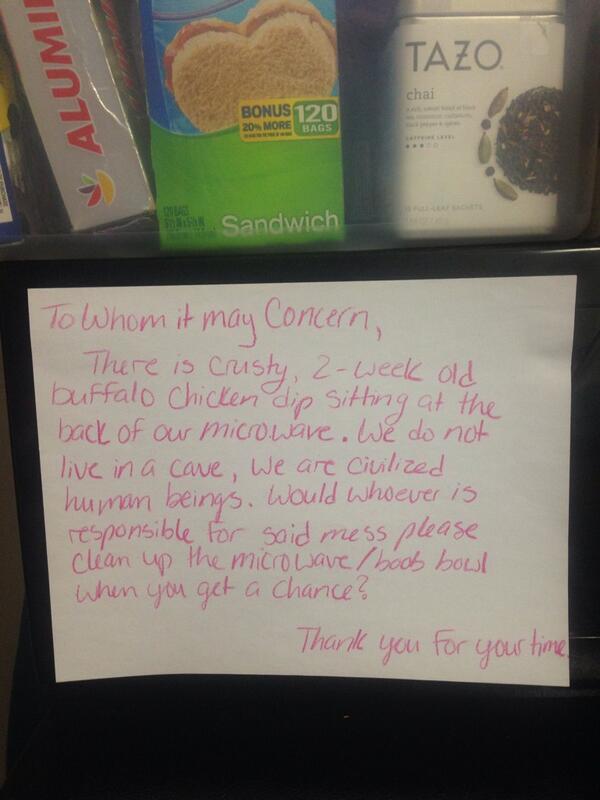 ALUMI
BONUS
20% MORE
120
BAGS
120 BAGS
Sandwich
TAZO
chai
CAFFEINE LEVEL
15 FULL-LEAF SACHETS
To Whom it may Concern,
There is crusty, 2-week old
buffalo chicken dip sitting at the
back of our microwave. We do not
live in a cave, we are civilized
human beings. Would whoever is
responsible for said mess please
clean up the microwave/boob bowl
when you get a chance?
Thank you for your time.